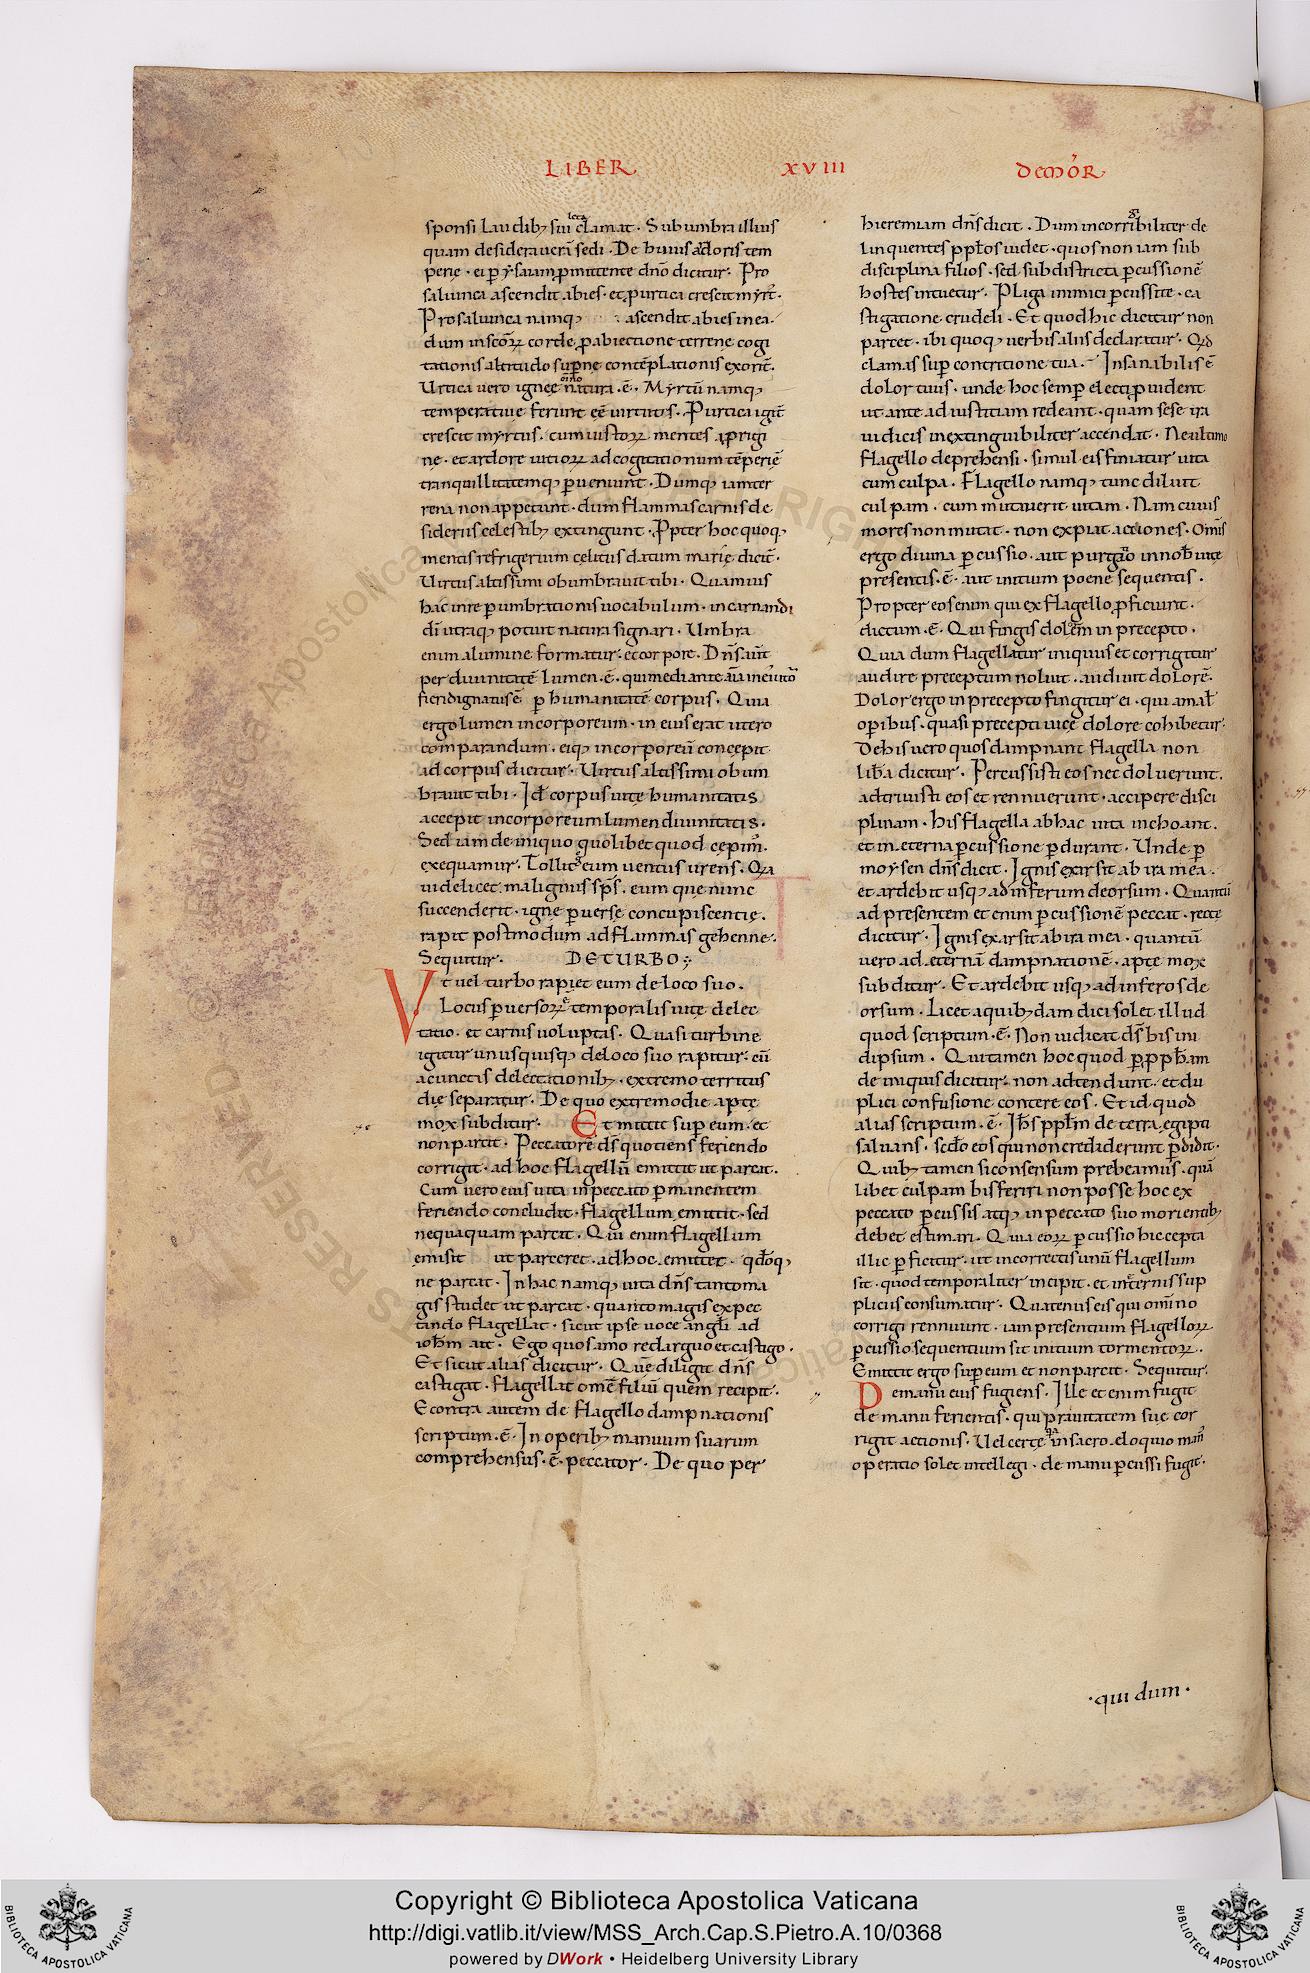 LIBER XVIII DEMOR̄
sponsi laudibꝫ sui leta clamat · Sub umbra illius
quam desideraverā sedi · De huius ardoris tem
perię · ei per ysaiam promittente dn̄o dicitur · Pro
saliunca ascendit abies · et pro urtica crescit myrt᷒ ·
Pro saliunca namqꝫ ascendit abies in ea ·
dum in sc̄orꝝ corde pro abiectione terrene cogi
tationis altitudo supernę contēplationis exorit᷒ ·
Urtica vero igneę omīo natura · ē · Myrtū namqꝫ
temperative ferunt eē virtutis · Pro urtica igit᷒
crescit myrtus · cum iustorꝝ mentes a prurigi
ne · et ardore vitiorꝝ ad cogitationum tēperiē
tranquillitatemqꝫ perveniunt · Dumqꝫ iam ter
rena non appetunt · dum flammas carnis de
sideriis celestibꝫ extingunt · Propter hoc quoqꝫ
mentis refrigerium celitus datum marię dicit᷒ ·
Virtus altissimi obumbravit tibi · Quamvis
hac in re per umbrationis vocabulum · incarnandi
dī utraqꝫ potuit natura signari · Umbra
enim a lumine formatur · et corpore · Dn̄s aūt
per divinitatē lumen · ē · qui mediante aīa in ei᷒ utō
fieri dignatus ē per humanitatē corpus · Quia
ergo lumen incorporeum · in eius erat utero
corporandum · eiqꝫ incorporeū concepit
ad corpus dicitur · Virtus altissimi obum
bravit tibi · Id ē corpus in te humanitatis
accepit incorporeum lumen divinitatis ·
Sed iam de iniquo quolibet quod cepim᷒ ·
exequamur · Tollit eum ventus urens · Qia
videlicet malignus sp̄s · eum quę nunc
succenderit · igne perversę concupiscentię ·
rapit postmodum ad flammas gehennę ·
Sequitur · DETURBO
Vt vel turbo rapiet eum de loco suo ·
Locus perversorꝝ ē temporalis vitę delec
tatio · et carnis voluptas · Quasi turbine
igitur unusquisqꝫ de loco suo rapitur · cū
a cunctis delectationibꝫ · extremo territus
die separatur · De quo extremo die aptę
mox subditur · Et mittit super eum · et
non parcit · Peccatorē ds̄ quotiens feriendo
corrigit · ad hoc flagellū emittit ut parcat ·
Cum vero eius vita in peccato permanentem
feriendo concludit · flagellum emittit · sed
nequaquam parcit · Qui enim flagellum
emisit ut parceret · ad hoc emittet · qd̄oqꝫ
ne parcat · In hac namqꝫ vita dn̄s tanto ma
gis studet ut parcat · quanto magis expec
tando flagellat · sicut ipse voce angl̄i ad
ioh̄m ait · Ego quos amo redarguo et castigo ·
Et sicut alias dicitur · Quē diligit dn̄s
castigat · flagellat omē filiū quem recipit ·
E contra autem de flagello dampnationis
scriptum · ē · In operibꝫ manuum suarum
comprehensus · ē · peccator · De quo per
hieremiam dn̄s dicit · Dum incorrigibiliter de
linquentes pp̄los videt · quos non iam sub
disciplina filios · sed sub districta percussionē
hostes intuetur · Plaga inimici percussi te · ca
stigatione crudeli · Et quod hic dicitur non
parcet · ibi quoqꝫ verbis aliis declaratur · Qid
clamas super contritione tua · Insanabilis ē
dolor tuus · unde hoc semper electi provident
ut ante ad iustitiam redeant · quam sese ira
iudicis inextinguibiliter accendat · Ne ultimo
flagello deprehensi · simul eis finiatur vita
cum culpa · Flagello namqꝫ tunc diluit
culpam · cum mutaverit vitam · Nam cuius
mores non mutat · non expiat actiones · Om̄is
ergo divina percussio · aut purgatio in nob᷒ vitę
presentis · ē · aut initium poenę sequentis ·
Propter eos enim qui ex flagello proficiunt ·
dictum · ē · Qui fingis dolorem in precepto ·
Quia dum flagellatur iniquus et corrigitur
audire preceptum noluit · audivit dolorē ·
Dolor ergo in precepto fingitur ei · qui a malis
operibus · quasi precepti vice dolore cohibetur ·
De his vero quos dampnant flagella non
lib̄a dicitur · Percussisti eos nec doluerunt ·
adtrivisti eos et rennuerunt · accipere disci
plinam · His flagella ab hac vita inchoant ·
et in eterna percussione perdurant · Unde per
moysen dn̄s dicit · Ignis exarsit ab ira mea ·
et ardebit usqꝫ ad inferum deorsum · Quantū
ad presentem et enim percussionē pertinet · recte
dicitur · Ignis exarsit ab ira mea · quantū
vero ad eternā dampnationē · apte mox
subditur · Et ardebit usqꝫ ad inferos de
orsum · Licet a quibꝫdam dici solet illud
quod scriptum · ē · Non iudicat ds̄ bis in i
dipsum · Qui tamen hoc quod per propħam
de iniquis dicitur · non adtendunt · et du
plici confusione contere eos · Et id quod
alias scriptum · ē · Ih̄s pp̄lm de terra egipti
salvans · scd̄o eos qui non crediderunt perdidit ·
Quibꝫ tamen si consensum prebeamus · quā
libet culpam bis feriri non posse hoc ex
peccato percussis atqꝫ in peccato suo morientibꝫ
debet estimari · Quia eorꝝ percussio hic cepta
illic perficitur · ut incorrectis unū flagellum
sit · quod temporaliter incipit · et in eternis sup
pliciis consumatur · Quatenus eis qui omnino
corrigi rennuunt · iam presentium flagellorꝝ
percussio sequentium sit initium tormentorꝝ ·
Emittit ergo super eum et non parcit · Sequitur ·
De manu eius fugiens · Ille et enim fugit
de manu ferientis · qui pravitatem suę cor
rigit actionis · Vel certe quia in sacro eloquio man᷒
operatio solet intellegi · de manu percussi fugit ·
· qui dum ·
Copyright © Biblioteca Apostolica Vaticana
http://digi.vatlib.it/view/MSS_Arch.Cap.S.Pietro.A.10/0368
powered by DWork • Heidelberg University Library
BIBLIOTECA APOSTOLICA VATICANA
BIBLIOTECA APOSTOLICA VATICANA